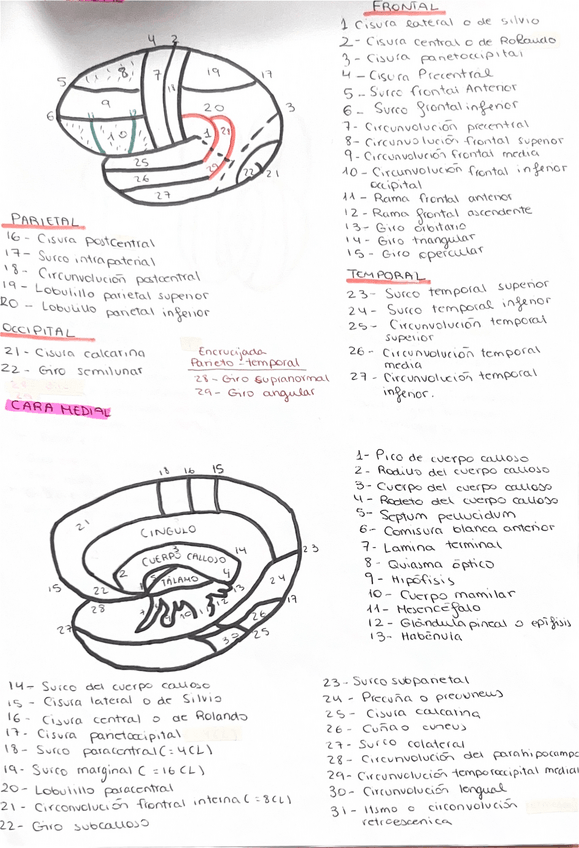 FRONTAL
1 Cisura lateral o de silvio
2- Cisura central o de Rolando
3- Cisura parietoccipital
4- Cisura Precentral
5- Surco frontal Anterior
6- Surco frontal inferior
7- Circunvolución precentral
8- Circunvolución frontal superior
9- Circunvolución frontal media
10- Circunvolución frontal inferior
occipital
11- Rama frontal anterior
12- Rama frontal ascendente
13- Giro orbitario
14- Giro triangular
15- Giro opercular
4 2
5 8 7 11 19 17
6 9 20 3
10 1 21
25
26 29 22 21
27
PARIETAL
16- Cisura postcentral
17- Surco intraparietal
18- Circunvolución postcentral
19- Lobulillo parietal superior
20- Lobulillo parietal inferior
OCCIPITAL
21- Cisura calcarina
22- Giro semilunar
Encrucijada
Parieto-temporal
28- Giro supranormal
29- Giro angular
TEMPORAL
23- Surco temporal superior
24- Surco temporal inferior
25- Circunvolución temporal
superior
26- Circunvolución temporal
media
27- Circunvolución temporal
inferior.
CARA MEDIAL
18 16 15
21
CINGULO
CUERPO CALLOSO
3 14 23
2 TALAMO 4
15 22 13 24
28 12 17
27 26
30 25
1- Pico de cuerpo calloso
2- Rodillo del cuerpo calloso
3- Cuerpo del cuerpo calloso
4- Rodeto del cuerpo calloso
5- Septum pellucidum
6- Comisura blanca anterior
7- Lamina terminal
8- Quiasma óptico
9- Hipófisis
10- Cuerpo mamilar
11- Mesencéfalo
12- Glándula pineal o epífisis
13- Habénula
14- Surco del cuerpo calloso
15- Cisura lateral o de Silvio
16- Cisura central o de Rolando
17- Cisura parietoccipital
18- Surco paracentral (= 4CL)
19- Surco marginal (= 16CL)
20- Lobulillo paracentral
21- Circonvolución frontral interna (= 8CL)
22- Giro subcalloso
23- Surco subparietal
24- Precuña o precuneus
25- Cisura calcarina
26- Cuña o cuneus
27- Surco colateral
28- Circunvolución del parahipocampo
29- Circunvolución temporoccipital medial
30- Circunvolución longual
31- Itsmo o circonvolución
retroescenica